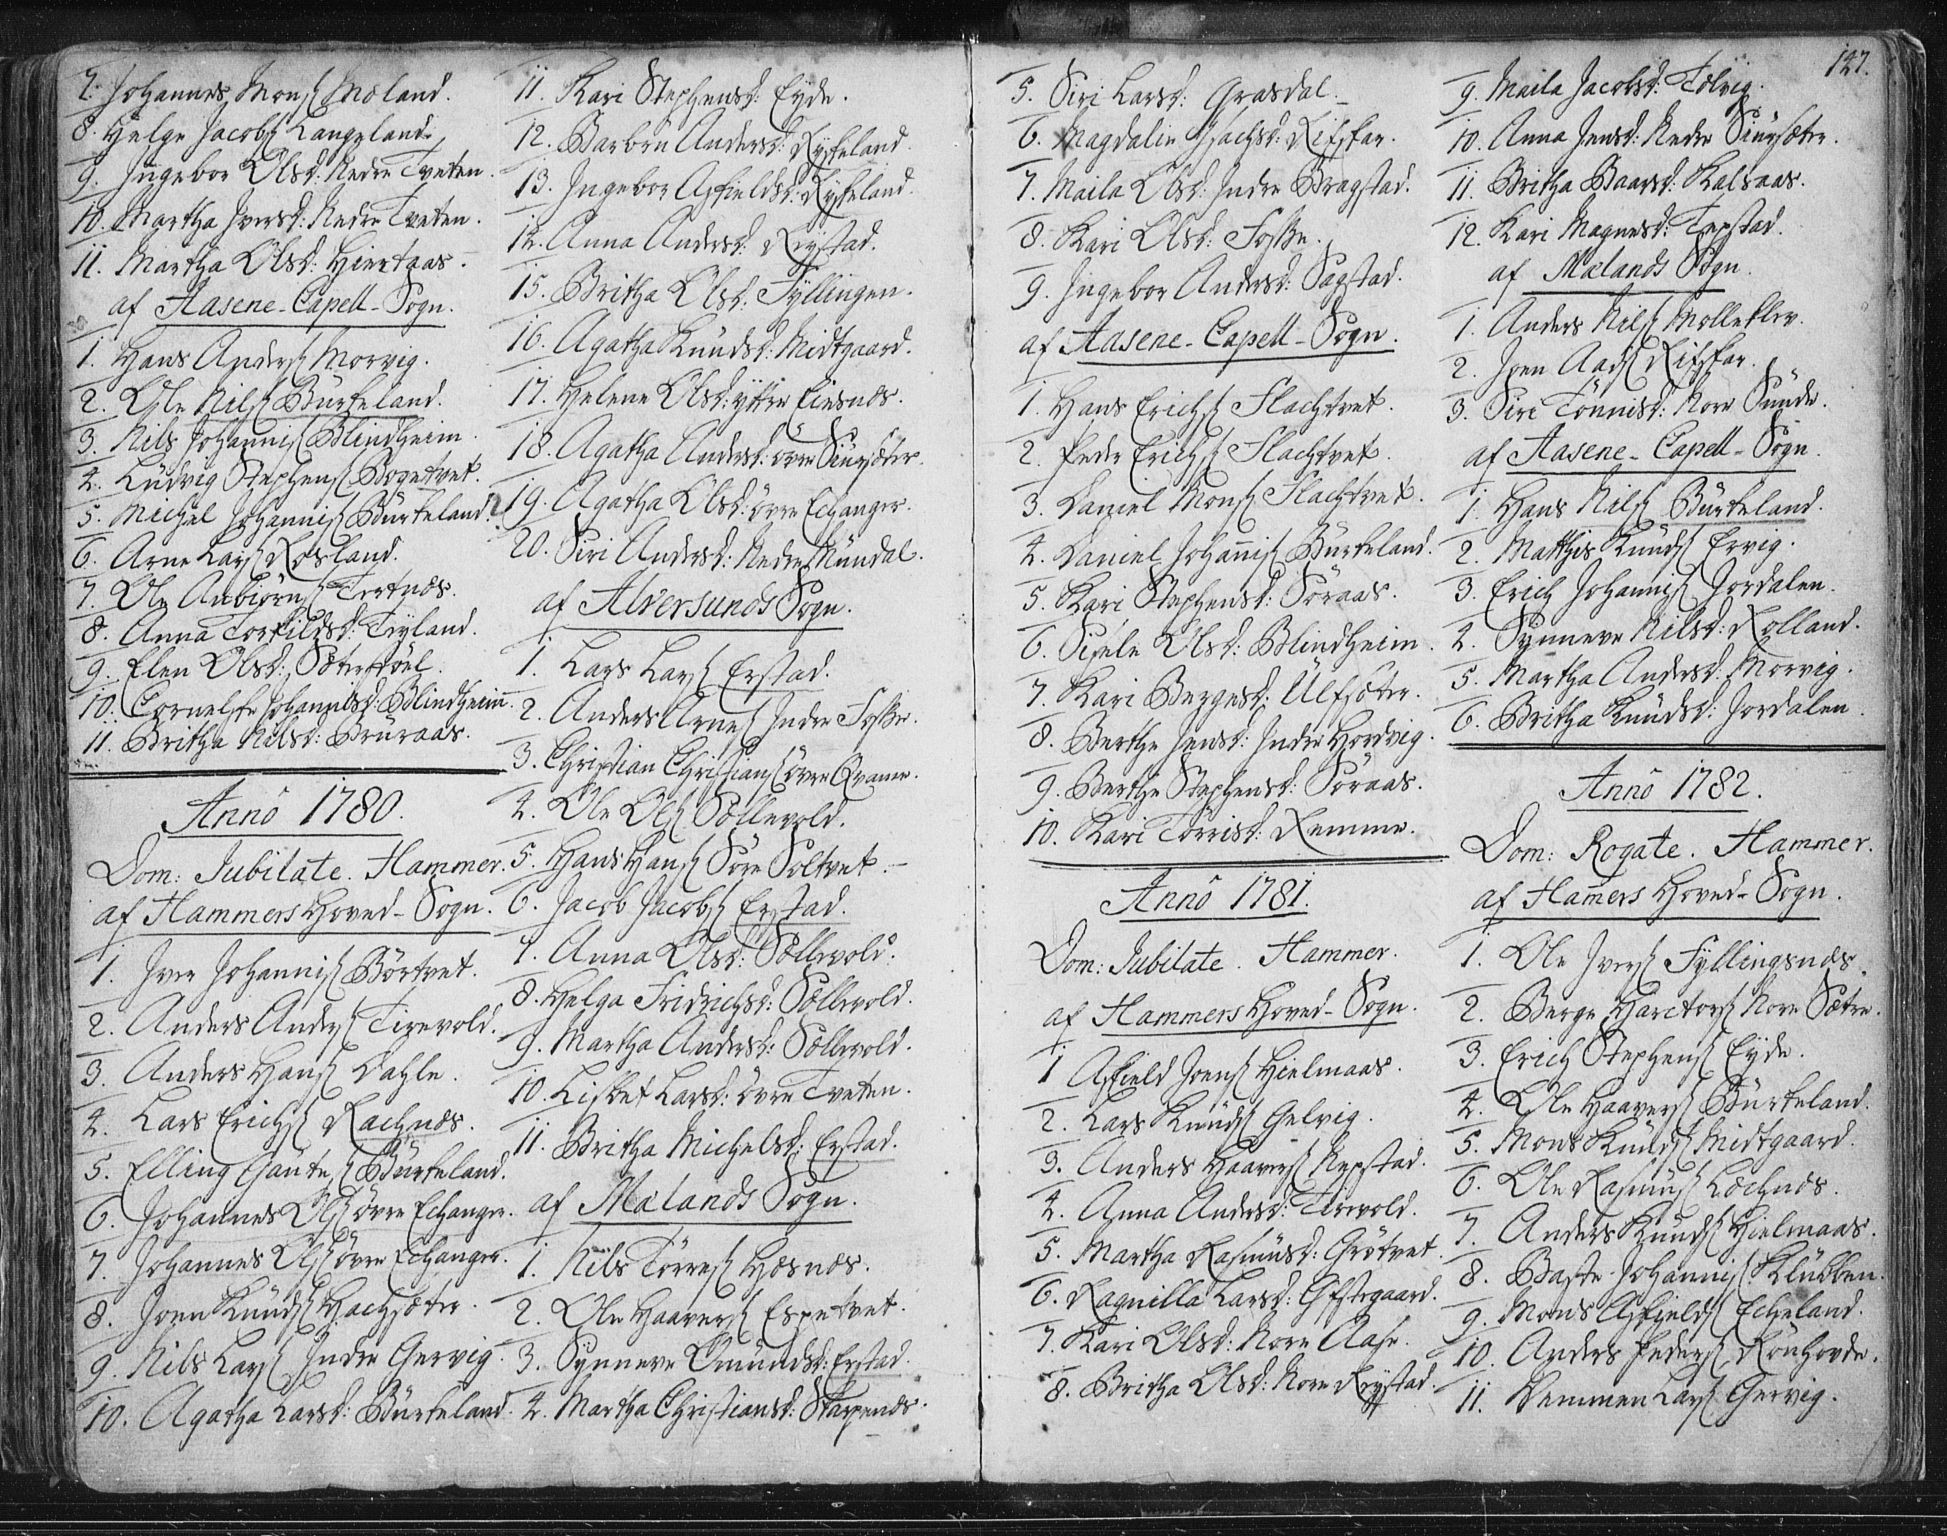 7. Johannes Mons Moland.
8. Helge Jacobs Langeland.
9. Ingebor Olsd: Nedre Tveten.
10. Martha Iversd: Nedre Tveten.
11. Martha Olsd: Hiertaas.
af Aasene-Capell-Sogn.
1. Hans Anders Morvig.
2. Ole Nils Bürkeland.
3. Nils Johannis Blindheim.
4. Lüdvig Stephens Bogetvet.
5. Michel Johannis Bürkeland.
6. Arne Lars Rosland.
7. Ole Anbiörns Tertnæs.
8. Anna Torkildsd: Tryland.
9. Elen Olsd: Sæterstöel.
10. Cornelse Johannesd: Blindheim.
11. Britha Nilsd: Brüraas.
Anno 1780.
Dom: Jubilate. Hammer.
af Hammers Hoved-Sogn.
1. Iver Johannis Börtvet.
2. Anders Anders Tirevold.
3. Anders Hans Dahle.
4. Lars Erichs Rachnæs.
5. Elling Gaute Bürkeland.
6. Johannes Ols övre Echanger.
7. Johannes Ols övre Echanger.
8. Joen Knüds Hachsæter.
9. Nils Lars Indre Gervig.
10. Agatha Larsd: Bürkeland.
11. Kari Stephensd: Eyde.
12. Barbru Andersd: Rykeland.
13. Ingebor Asfieldsd: Rykeland.
14. Anna Andersd: Rystad.
15. Britha Olsd: Fyllingen.
16. Agatha Knüdsd: Midtgaard.
17. Helene Olsd: yttre Eiesnes.
18. Agatha Andersd: övre Sinysæter.
19. Agatha Olsd: övre Echanger.
20. Siri Andersd: Nedre Mündal.
af Alversunds Sogn.
1. Lars Lars Erstad.
2. Anders Arnes Indre Fosse.
3. Christian Christians övre Qvamme.
4. Ole Ols Sællevold.
5. Hans Hans Söre Soltvet.
6. Jacob Jacobs Erstad.
7. Anna Olsd: Sællevold.
8. Helga Fridrichsd: Sællevold.
9. Martha Andersd: Sællevold.
10. Lisbet Larsd: övre Tveten.
11. Britha Michelsd: Erstad.
af Mælands Sogn.
1. Nils Törres Hæsnæs.
2. Ole Haavers Espetvet.
3. Synneve Omündsd: Erstad.
4. Martha Christiansd: Skarpenæs.
127.
5. Siri Larsd: Grasdal.
6. Magdalin Isachsd: Rifskar.
7. Maila Olsd: Indre Bragstad.
8. Kari Olsd: Fosse.
9. Ingebor Andersd: Sagstad.
af Aasene-Capell-Sogn.
1. Hans Erichs Flachtvet.
2. Peder Erichs Flachtvet.
3. Daniel Mons Flachtvet.
4. Daniel Johannis Bürkeland.
5. Kari Stephensd: Söraas.
6. Sisele Olsd: Blindheim.
7. Kari Bergesd: Ülfsæter.
8. Berthe Jensd: Indre Hordvig.
9. Berthe Stephensd: Söraas.
10. Kari Torrisd: Remme.
Anno 1781.
Dom: Jubilate. Hammer.
af Hammers Hoved-Sogn.
1 Asfield Joens Hielmaas.
2. Lars Knüds Gelvig.
3. Anders Haavers Repstad.
4. Anna Andersd: Tirevold.
5. Martha Rasmüsd: Grötvet.
6. Ragnilla Larsd: Östregaard.
7. Kari Olsd: Nore Aase.
8. Britha Olsd: Nore Rystad.
9. Maila Jacobsd: Tolvig.
10. Anna Jensd: Nedre Sinysæter.
11. Britha Baarsd: Kalsaas.
12. Kari Magnesd: Tepstad.
af Mælands Sogn.
1. Anders Nils Mollekler.
2. Joen Aads Rifskar.
3. Siri Tönnisd: Nore Sünde.
af Aasene-Capell-Sogn.
1. Hans Nils Bürkeland.
2. Matthis Knüds Ervig.
3. Erich Johannis Jordalen.
4. Synneve Nilsd: Rolland.
5. Martha Andersd: Morvig.
6. Britha Knüdsd: Jordalen.
Anno 1782.
Dom: Rogate. Hammer.
af Hamers Hoved-Sogn.
1. Ole Ivers Fyllingsnæs.
2. Berge Haectors Nore Sætre.
3. Erich Stephens Eyde.
4. Ole Haavers Bürkeland.
5. Mons Knüds Midtgaard.
6. Ole Rasmüs Lochnæs.
7. Anders Knüds Hielmaas.
8. Baste Johannis Klübben.
9. Mons Asfields Echeland.
10. Anders Peders Rönhovde.
11. Nemmen Lars Gervig.